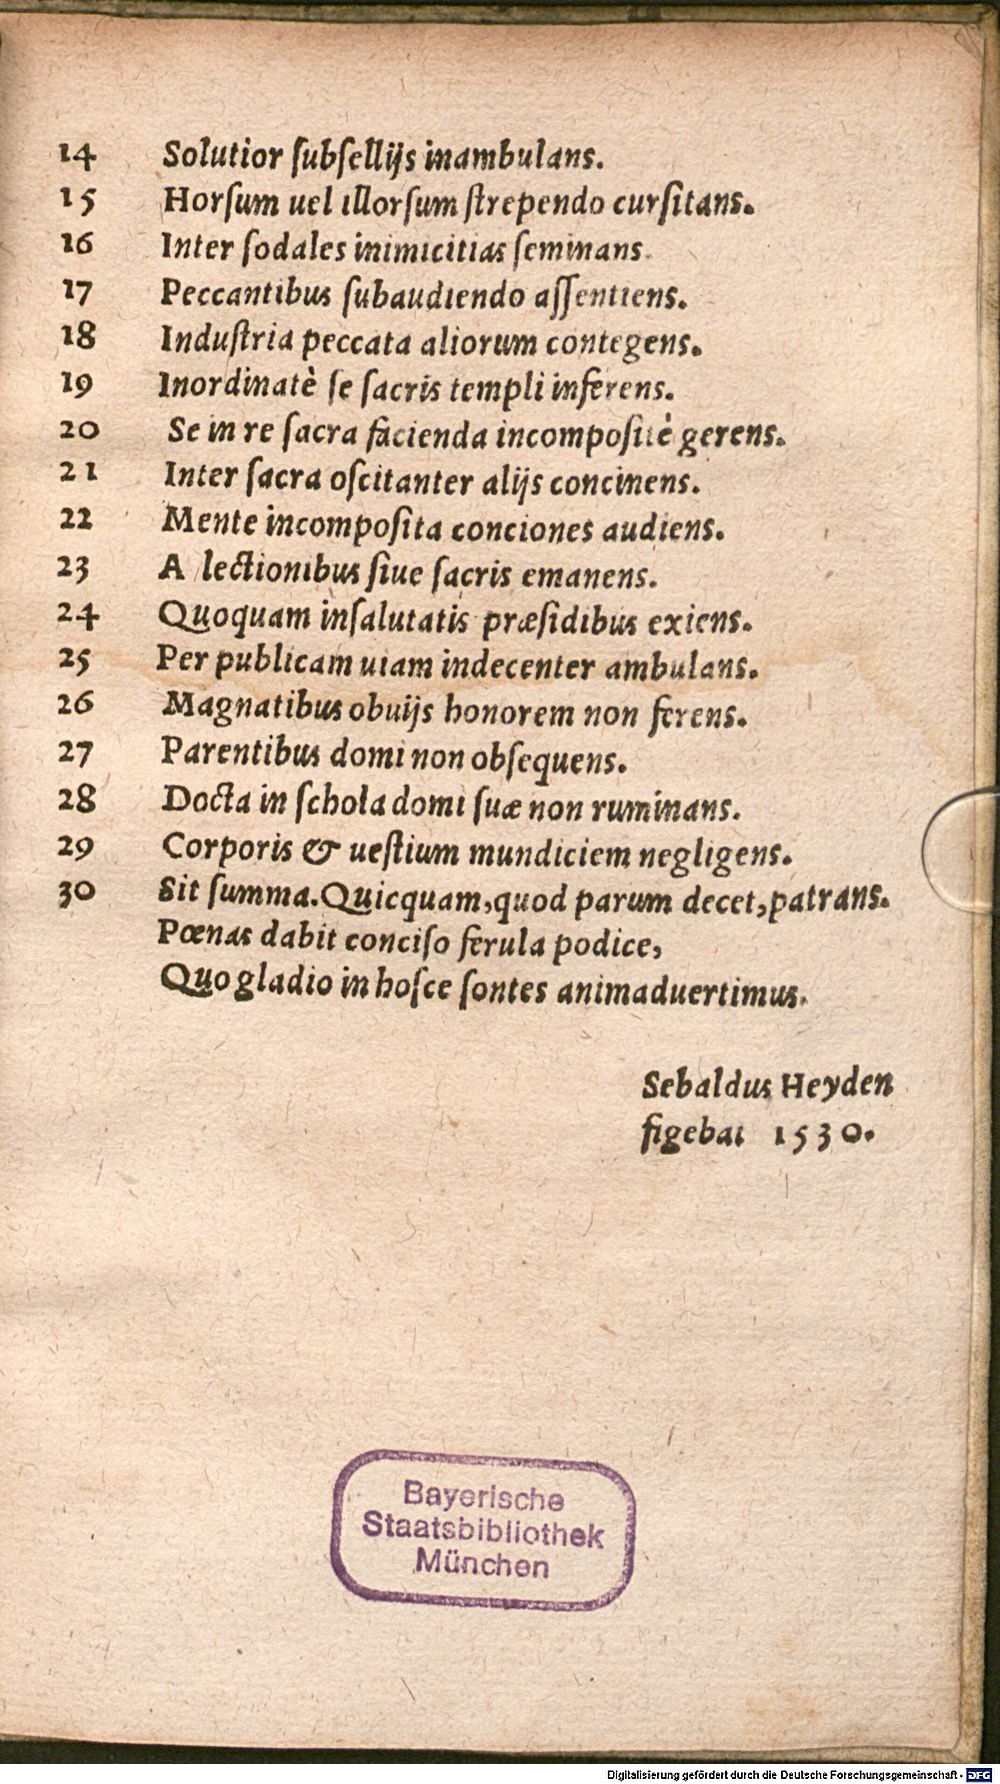 14 Solutior ſubſellijs inambulans.
15 Horſum uel illorſum ſtrependo curſitans.
16 Inter ſodales inimicitias ſeminans.
17 Peccantibus ſubaudiendo aſſentiens.
18 Induſtria peccata aliorum contegens.
19 Inordinatè ſe ſacris templi inferens.
20 Se in re ſacra facienda incompoſitè gerens.
21 Inter ſacra oſcitanter alijs concinens.
22 Mente incompoſita conciones audiens.
23 A lectionibus ſiue ſacris emanens.
24 Quoquam inſalutatis præſidibus exiens.
25 Per publicam uiam indecenter ambulans.
26 Magnatibus obuijs honorem non ferens.
27 Parentibus domi non obſequens.
28 Docta in ſchola domi ſuæ non ruminans.
29 Corporis & ueſtium mundiciem negligens.
30 Sit ſumma. Quicquam, quod parum decet, patrans.
Pœnas dabit conciſo ferula podice,
Quo gladio in hoſce ſontes animaduertimus.
Sebaldus Heyden
figebat 1530.
Bayerische
Staatsbibliothek
München
Digitalisierung gefördert durch die Deutsche Forschungsgemeinschaft - DFG